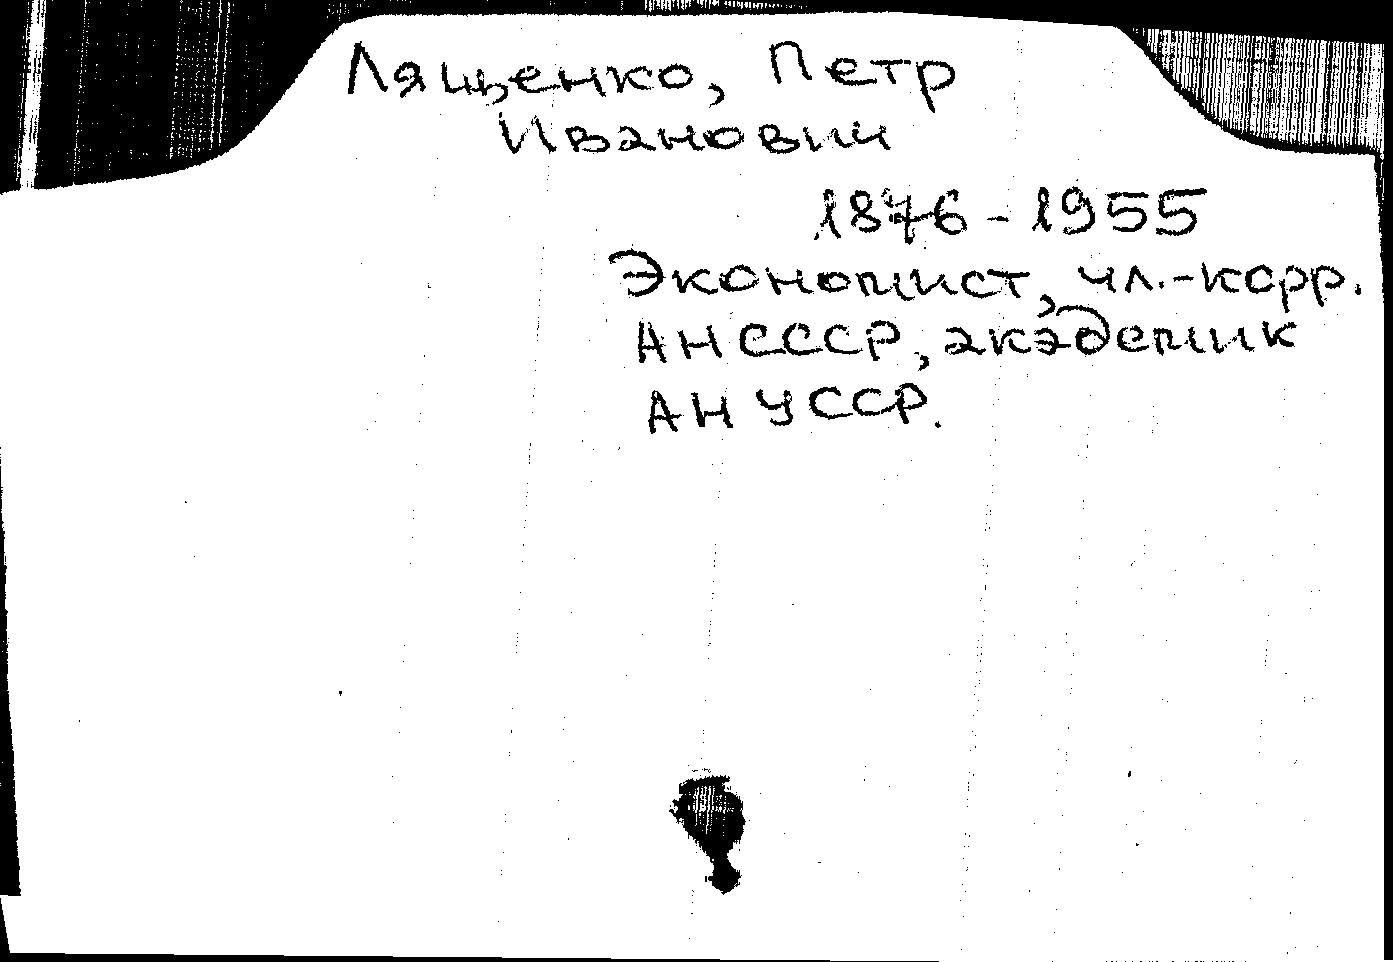 Лященко, Петр
Иванович
1876-1955
Экономист, чл.-корр.
АН СССР, академик
АН УССР.